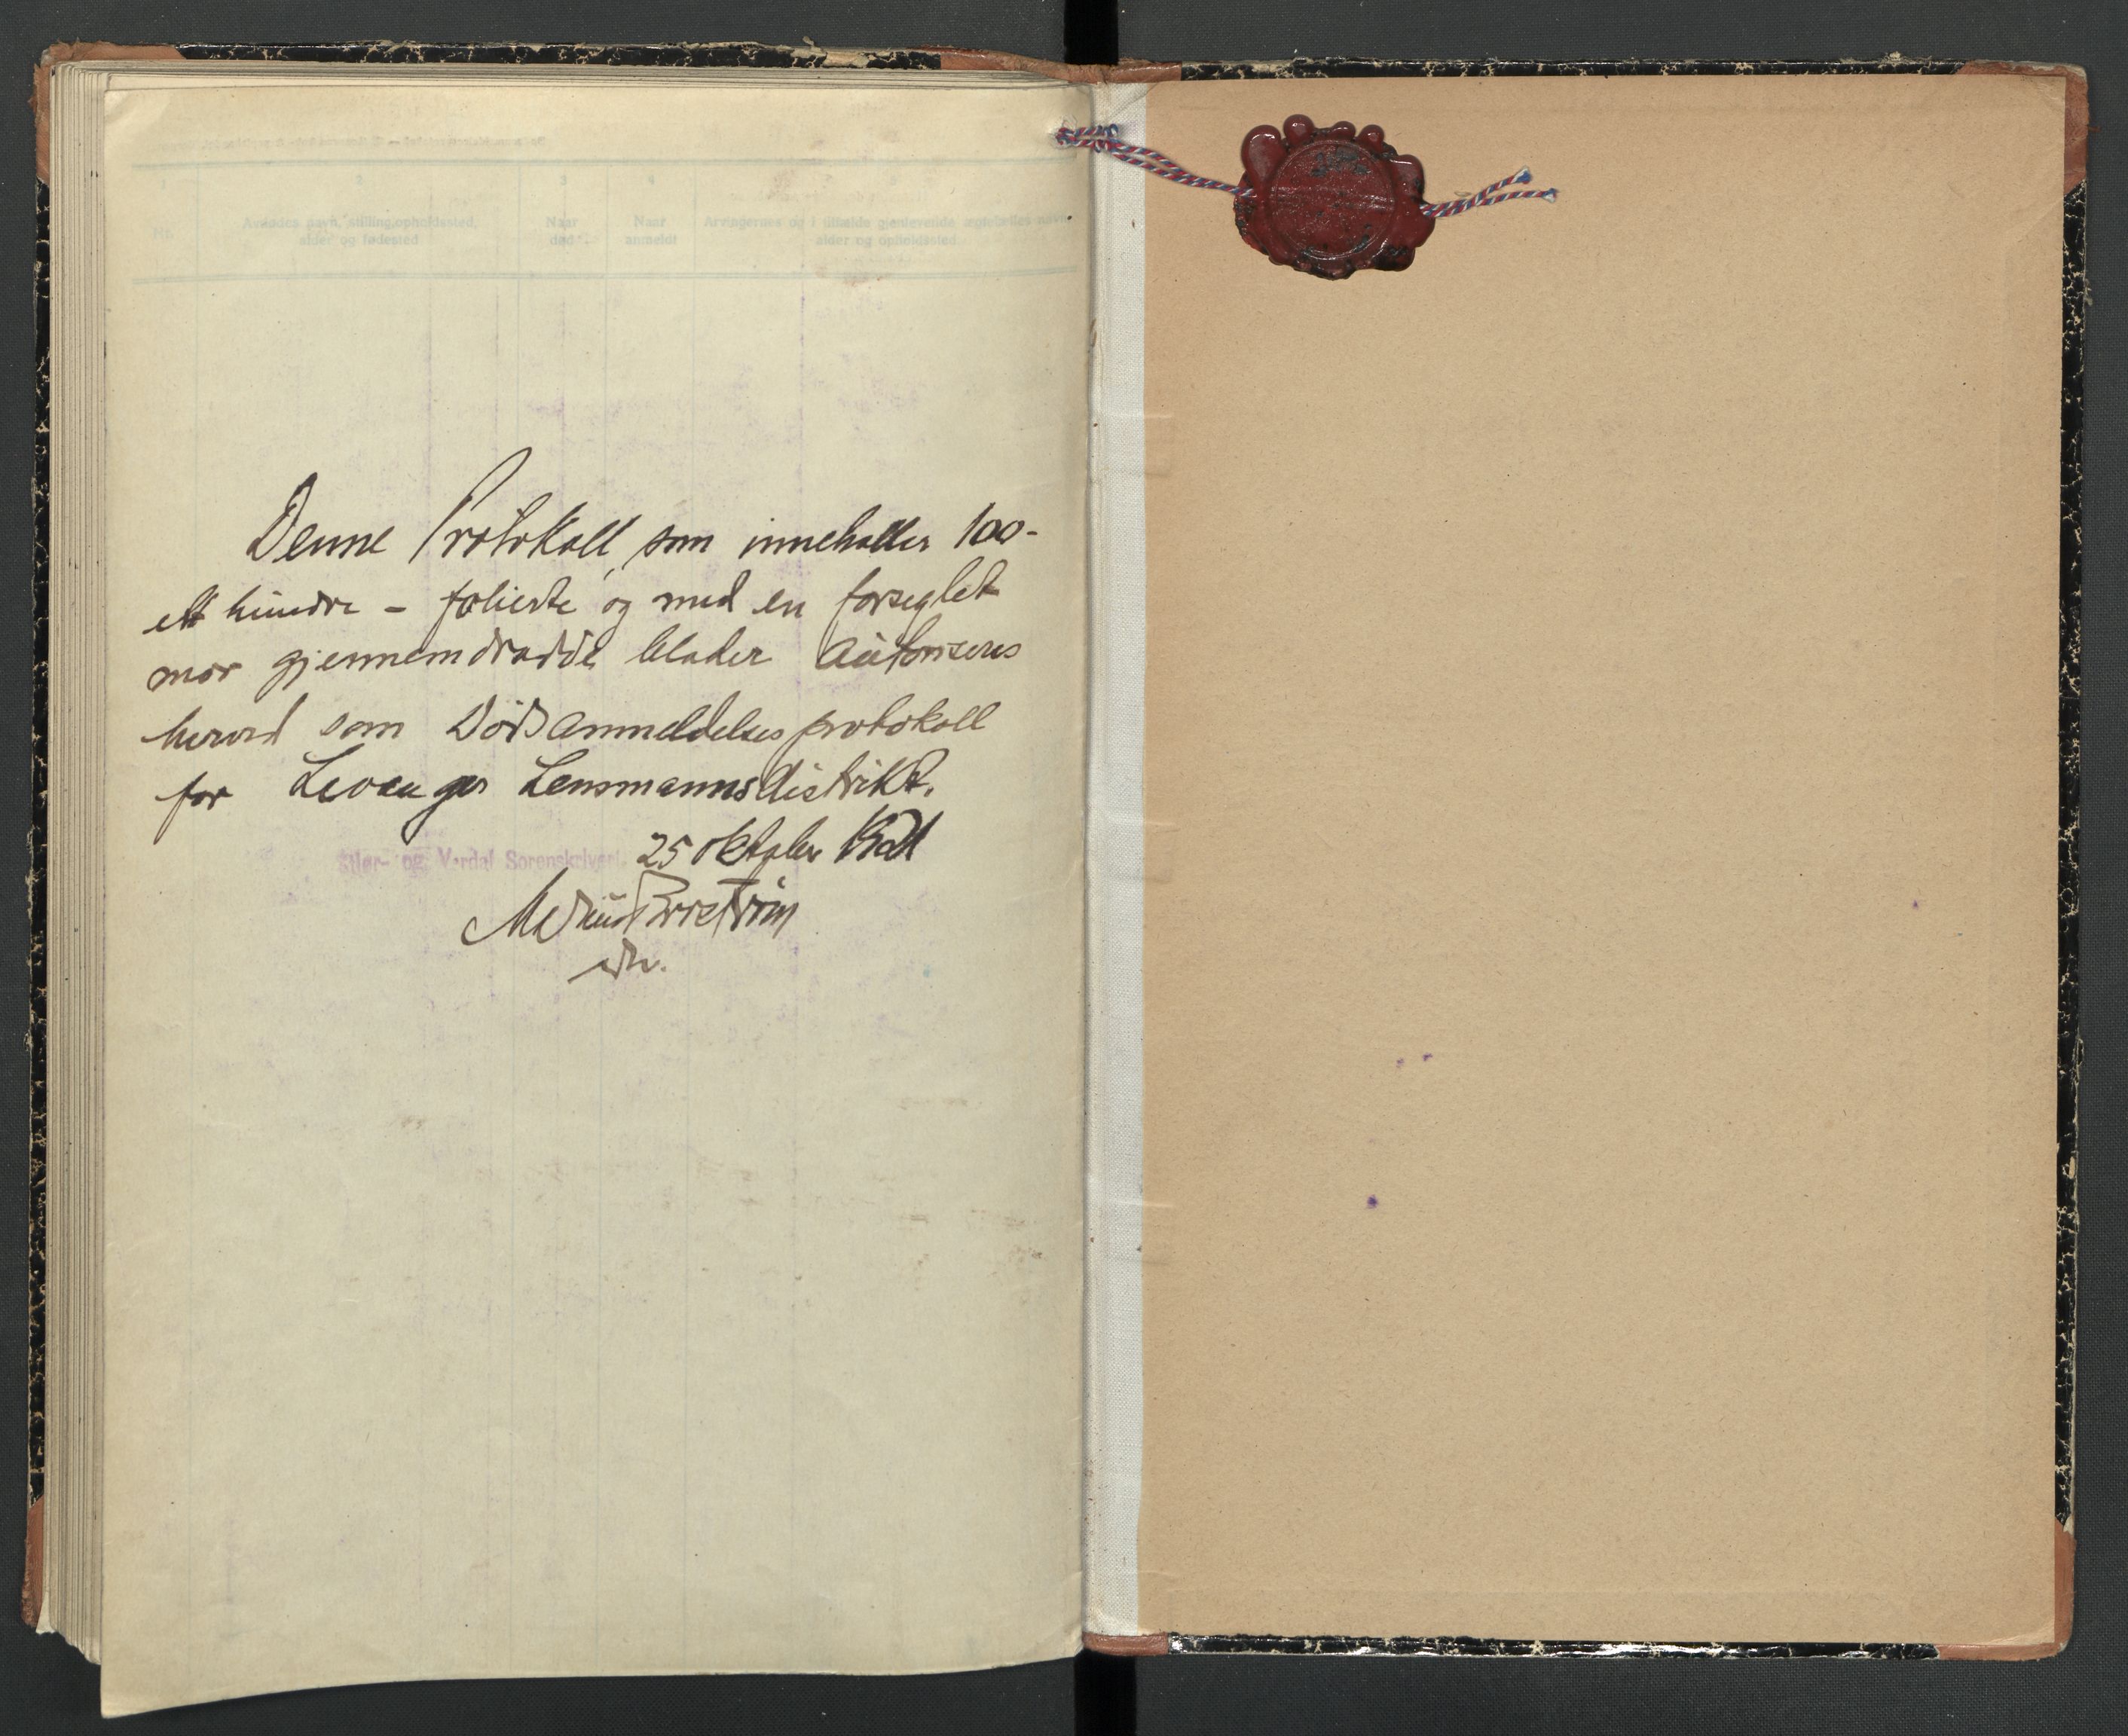 1 2 3 4
No. Avdødes navn, stilling, opholdssted, alder og fødested
Naar død
Naar anmeldt
Arvingernes og i tilfælde gjenlevende ægtefælles navn, alder og opholdssted
Denne Protokoll, som inneholder 100-
ett hundre - folierte og med en forseglet
snor gjennemdradde blader autoriseres
herved som Dødsanmeldelsesprotokoll
for Levanger Lensmannsdistrikt.
Stjør- og Verdal Sorenskriveri, 25 oktober